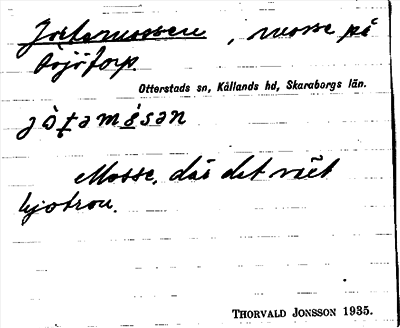 Jortemossen, mosse på
Röjötorp.
Otterstads sn, Kållands hd, Skaraborgs län.
Mosse, där det växt
hjotron.
THORVALD JONSSON 1935.